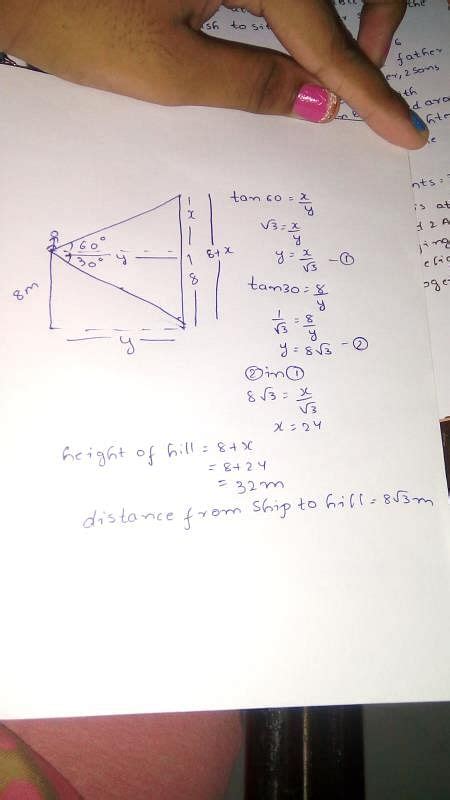 sh to si
6
father
er, 2 sons
60°
30°
y
x
8
8+x
8m
y
tan 60 = x/y
√3 = x/y
y = x/√3 - ①
tan 30 = 8/y
1/√3 = 8/y
y = 8√3 - ②
② in ①
8√3 = x/√3
x = 24
height of hill = 8+x
= 8+24
= 32m
distance from ship to hill = 8√3 m